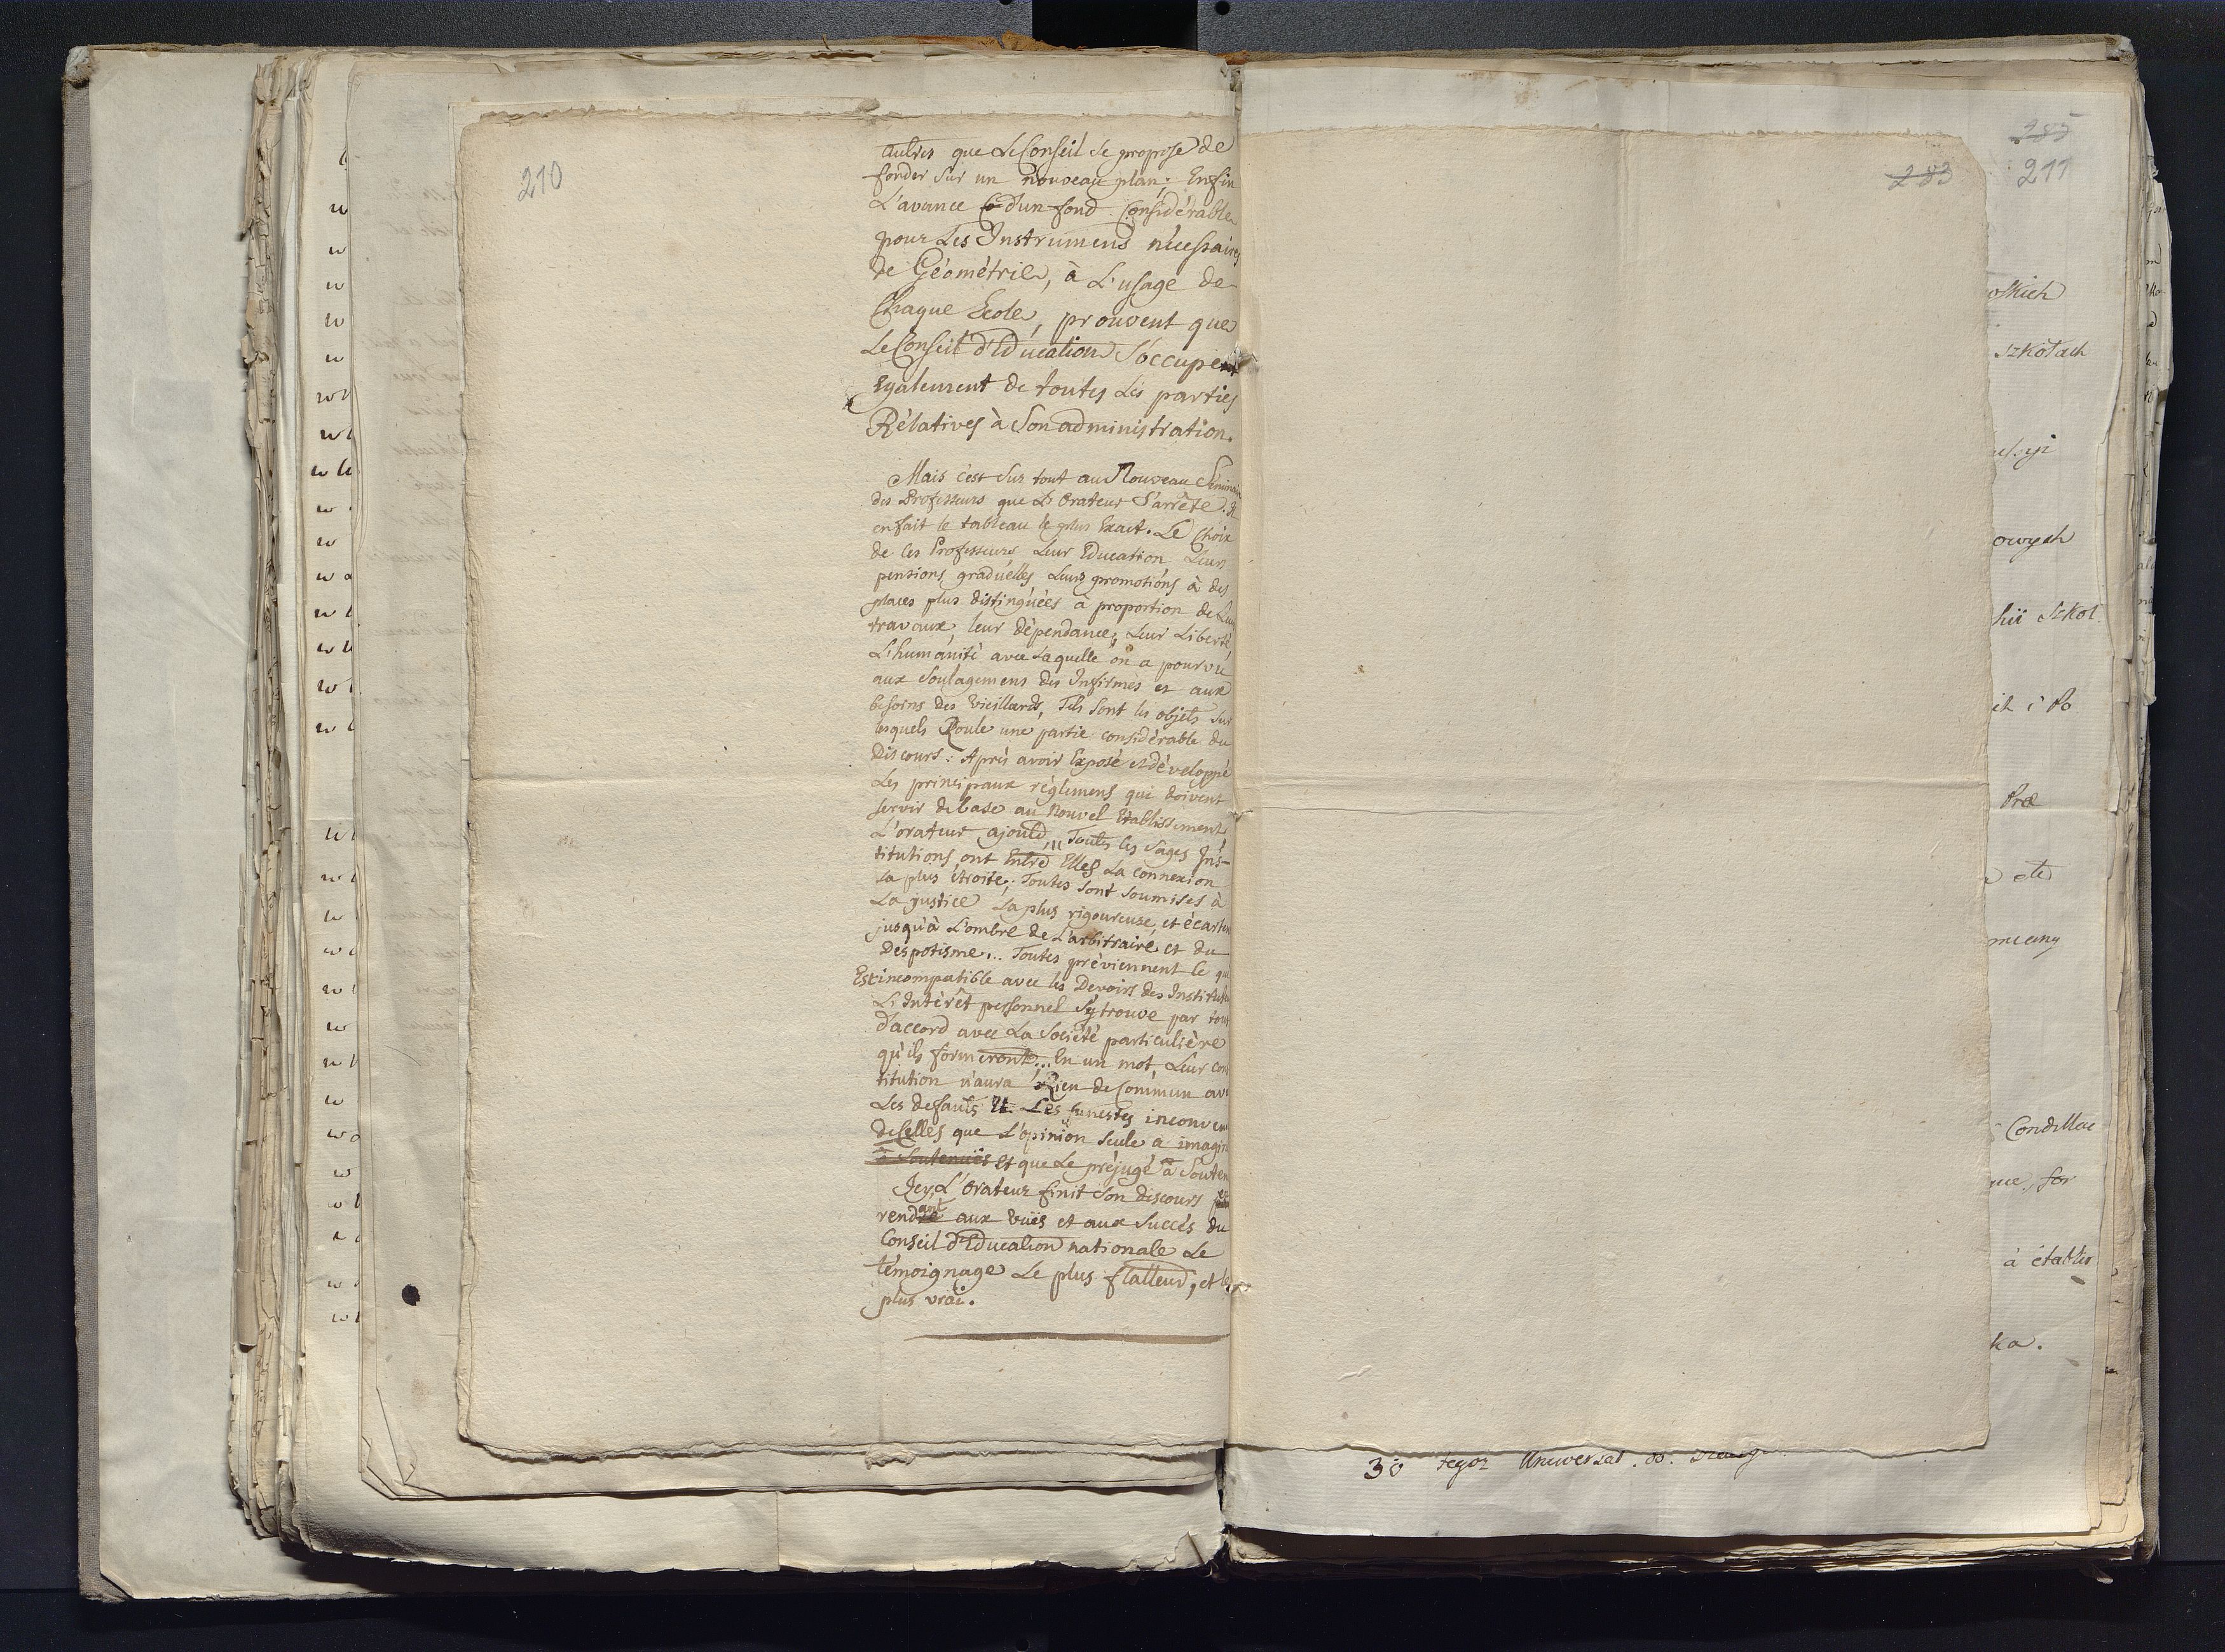 210
autres que Le Conseil se propose de
fonder sur un nouveau plan; Enfin
L'avance d'un fond Considérable
pour Les Instrumens nécessaires
de Géométrie, à L'usage de
Chaque Ecole, prouvent que
Le Conseil d'Education s'occupent
Egalement de toutes Les parties
Rélatives à Son administration.
Mais c'est Sur tout au Nouveau Séminaire
des Professeurs que L'Orateur S'arrête. Il
en fait le tableau le plus Exact. Le Choix
de ces Professeurs Leur Education Leurs
pensions graduelles Leurs promotions à des
places plus distinguées à proportion de Leurs
travaux, leur dépendance, Leur Liberté,
L'humanité avec Laquelle on a pourvu
aux Soulagemens des Infirmes et aux
besoins des Vieillards, Tels Sont les objets Sur
lesquels Roule une partie considérable du
Discours: Après avoir Exposé et développé
Les principaux règlemens qui doivent
servir de base au Nouvel Etablissement
L'orateur ajoute, "Toutes les Sages Ins-
titutions ont Entre Elles La connexion
La plus étroite; Toutes Sont Soumises à
La justice La plus rigoureuse, et écartent
jusqu'à L'ombre de L'arbitraire et du
Despotisme... Toutes préviennent le qu
Est incompatible avec les Devoirs des Institut
L'Intérêt personnel S'y trouve par tout
d'accord avec La Société particulière
qu'ils formeront... En un mot, Leur con
titution n'aura Rien de Commun av
Les defauts Et Les funestes inconven
de Celles que L'opinion Seule a imagin
à Soutenües et que Le préjugé a Souten
Icy, L'Orateur finit Son discours
rendant aux vües et aux Succès du
Conseil d'Education nationale Le
témoignage Le plus flatteur, et le
plus vrai.
283
211
Szkołach
Szkol
Condillac
à établir
30 tegoż Uniwersał.